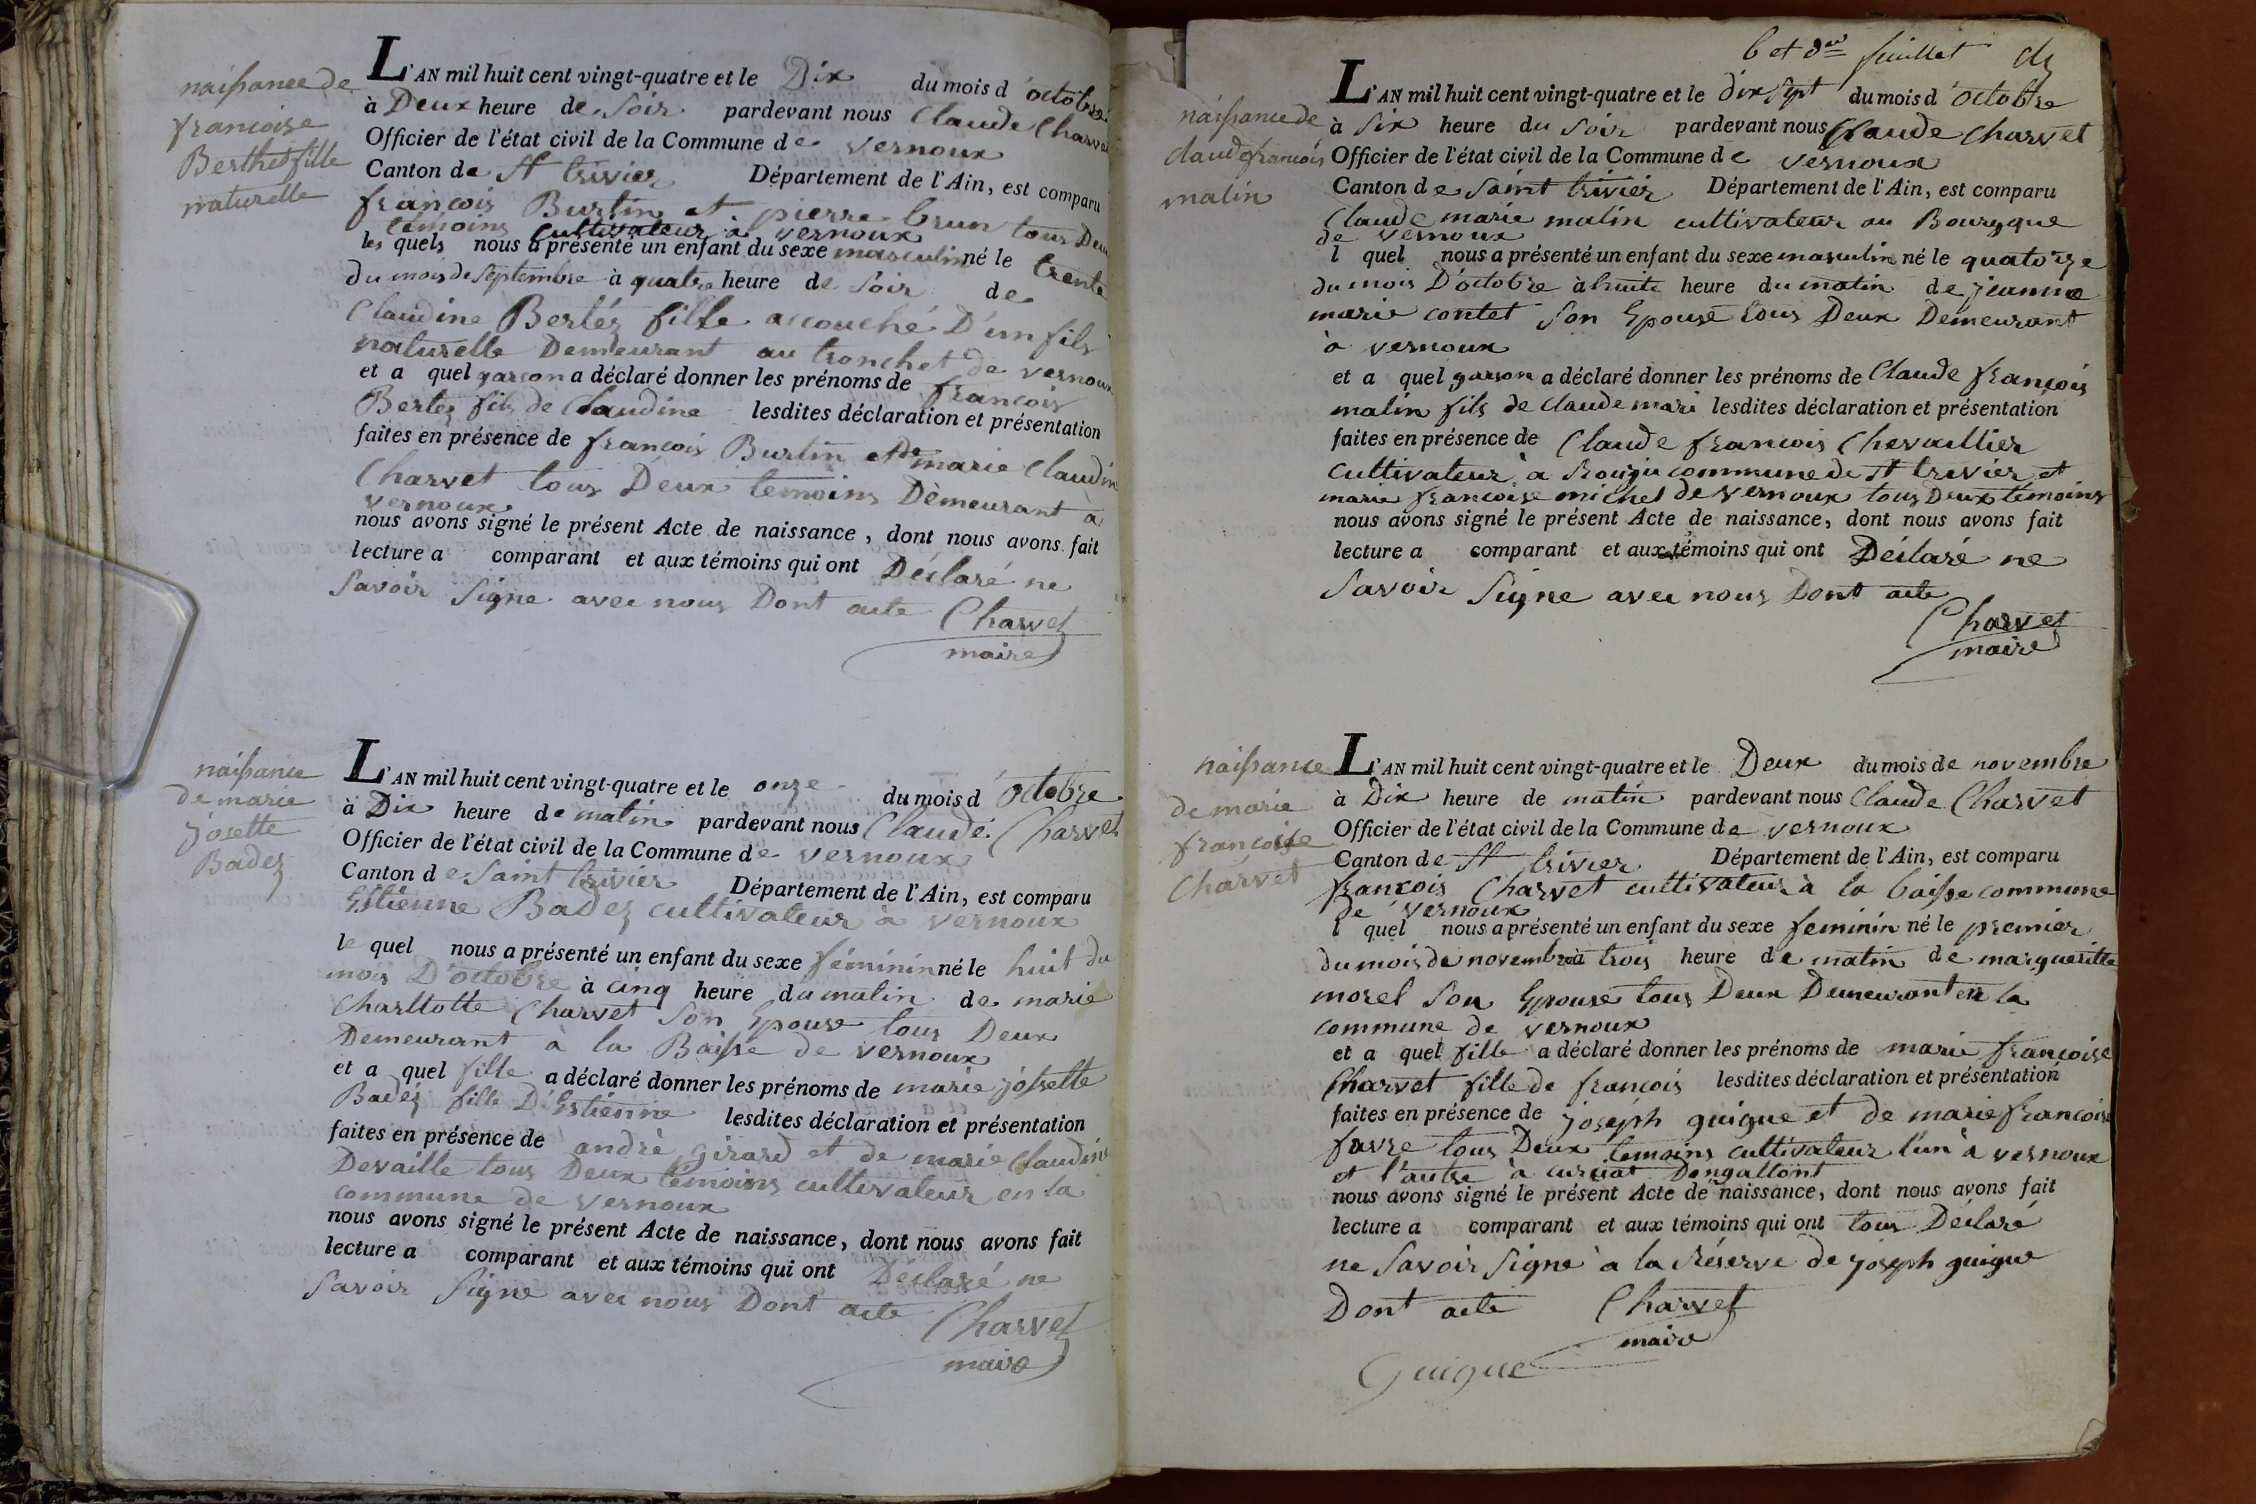 naissance de
francoise
Berthet fille
naturelle
L'AN mil huit cent vingt-quatre et le Dix du mois d'octobre
à Deux heure de Soir pardevant nous Claude Charvet
Officier de l'état civil de la Commune de vernoux
Canton de St trivier Département de l'Ain, est comparu
francois Burtin et pierre brun tous Deux
témoins Cultivateur à vernoux
les quels nous a présenté un enfant du sexe masculin né le trente
du mois de Septembre à quatre heure de Soir de
Claudine Bertéz fille accouché D'un fils
naturelle Demeurant au tronchet de vernoux
et a quel garson a déclaré donner les prénoms de francois
Bertez fils de Claudine lesdites déclaration et présentation
faites en présence de francois Burtin et de marie Claudine
Charvet tous Deux temoins Dèmeurant à
vernoux
nous avons signé le présent Acte de naissance, dont nous avons fait
lecture a comparant et aux témoins qui ont Déclaré ne
Savoir Signe avec nous Dont acte Charvet
maire
naissance
de marie
josette
Badez
L'AN mil huit cent vingt-quatre et le onze du mois d'octobre
à Dix heure de matin pardevant nous Claude Charvet
Officier de l'état civil de la Commune de vernoux
Canton de Saint trivier Département de l'Ain, est comparu
Estienne Badez cultivateur à vernoux
le quel nous a présenté un enfant du sexe féminin né le huit du
mois D'octobre à cinq heure du matin de marie
Charltotte Charvet Son Epouse tous Deux
Demeurant à la Baisse de vernoux
et a quel fille a déclaré donner les prénoms de marie josette
Badéz fille D'Estienne lesdites déclaration et présentation
faites en présence de andrè girard et de marie Claudine
Devaille tous Deux témoins cultivateur en la
commune de vernoux
nous avons signé le présent Acte de naissance, dont nous avons fait
lecture a comparant et aux témoins qui ont Déclaré ne
Savoir Signe avec nous Dont acte Charvet
maire
6 et der feuillet
naissance de
claude francois
malin
L'AN mil huit cent vingt-quatre et le dix Sept du mois d'octobre
à Six heure du Soir pardevant nous Claude Charvet
Officier de l'état civil de la Commune de vernoux
Canton de Saint trivier Département de l'Ain, est comparu
Claude marie malin cultivateur au Bourg que
de vernoux
l quel nous a présenté un enfant du sexe masculin né le quatorze
du mois D'octobre à huite heure du matin de jeanne
marie contet Son Epouse tous Deux Demeurant
à vernoux
et a quel garson a déclaré donner les prénoms de Claude francois
malin fils de claude mari lesdites déclaration et présentation
faites en présence de Claude francois Chevaillier
cultivateur à commune de St trivier et
marie francoise michel de vernoux tous Deux témoins
nous avons signé le présent Acte de naissance, dont nous avons fait
lecture a comparant et aux témoins qui ont Déclaré ne
Savoir Signe avec nous Dont acte
Charvet
maire
naissance
de marie
francoise
Charvet
L'AN mil huit cent vingt-quatre et le Deux du mois de novembre
à Dix heure de matin pardevant nous Claude Charvet
Officier de l'état civil de la Commune de vernoux
Canton de St trivier Département de l'Ain, est comparu
francois Charvet cultivateur à la baisse commune
de vernoux
l quel nous a présenté un enfant du sexe feminin né le premier
du mois de novembre à trois heure de matin de margueritte
morel Son Epouse tous Deux Demeurant en la
commune de vernoux
et a quel fille a déclaré donner les prénoms de marie francoise
Charvet fille de francois lesdites déclaration et présentation
faites en présence de joseph guigue et de marie francoise
favre tous Deux temoins cultivateur l'un à vernoux
et l'autre à curciat Dongallont
nous avons signé le présent Acte de naissance, dont nous avons fait
lecture a comparant et aux témoins qui ont tous Déclaré
ne Savoir Signe à la Réserve de joseph guigue
Dont acte Charvet
maire
Guigue